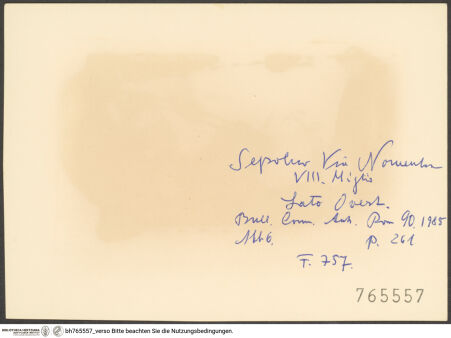 Sepolcro Via Nomentana
VIII. Miglio
Lato Ovest.
Bull. Com. Arch. Rom 90. 1985
Abb 6. p. 261
F. 757.
765557
bh765557_verso Bitte beachten Sie die Nutzungsbedingungen.